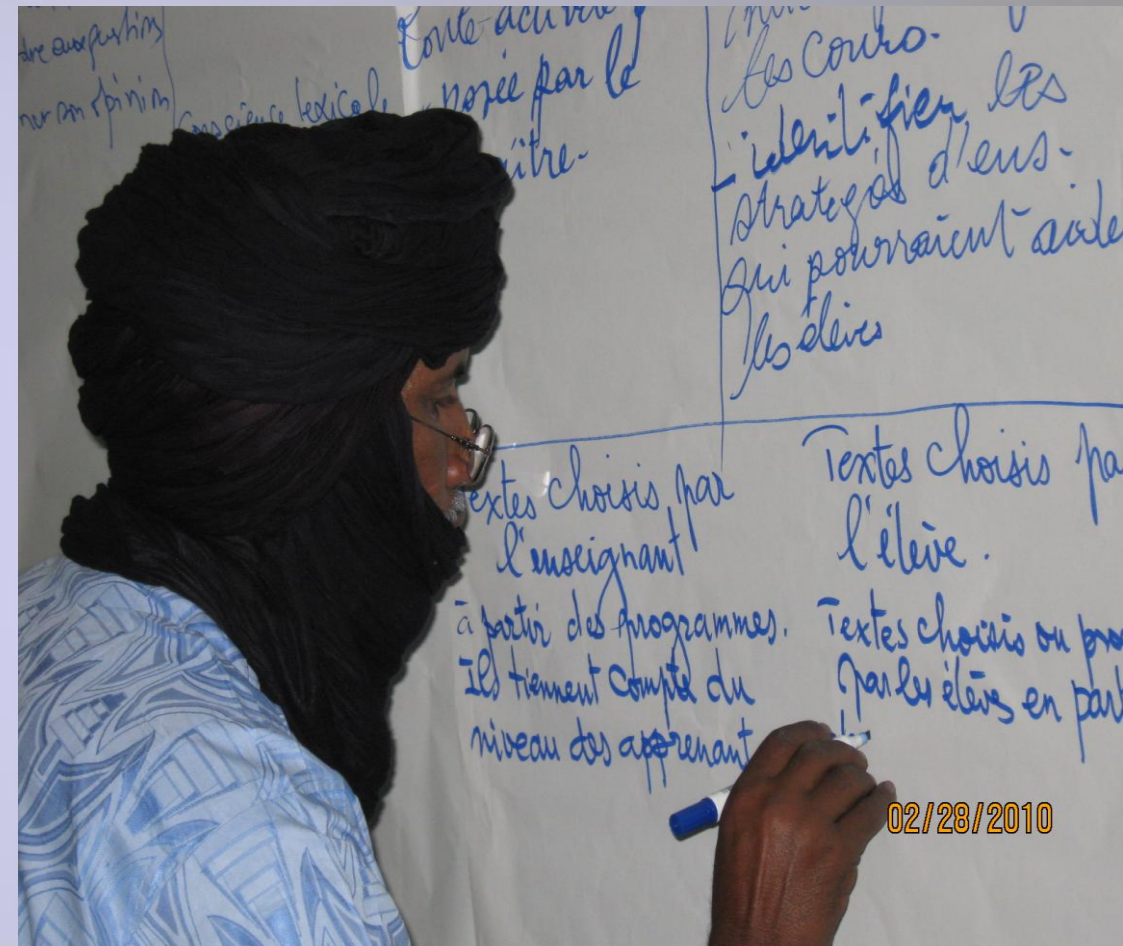 aux questions
son opinion
Conscience lexicale
Toute activité
posée par le
les cours.
- identifier les
strategés d'ens-
qui pourraient aide
les élèves
extes choisis par
l'enseignant
à partir des programmes.
Ils tiennent compte du
niveau des apprenant
Textes choisis pa
l'élève.
Textes choisis ou pro
par les élèves en part
02/28/2010